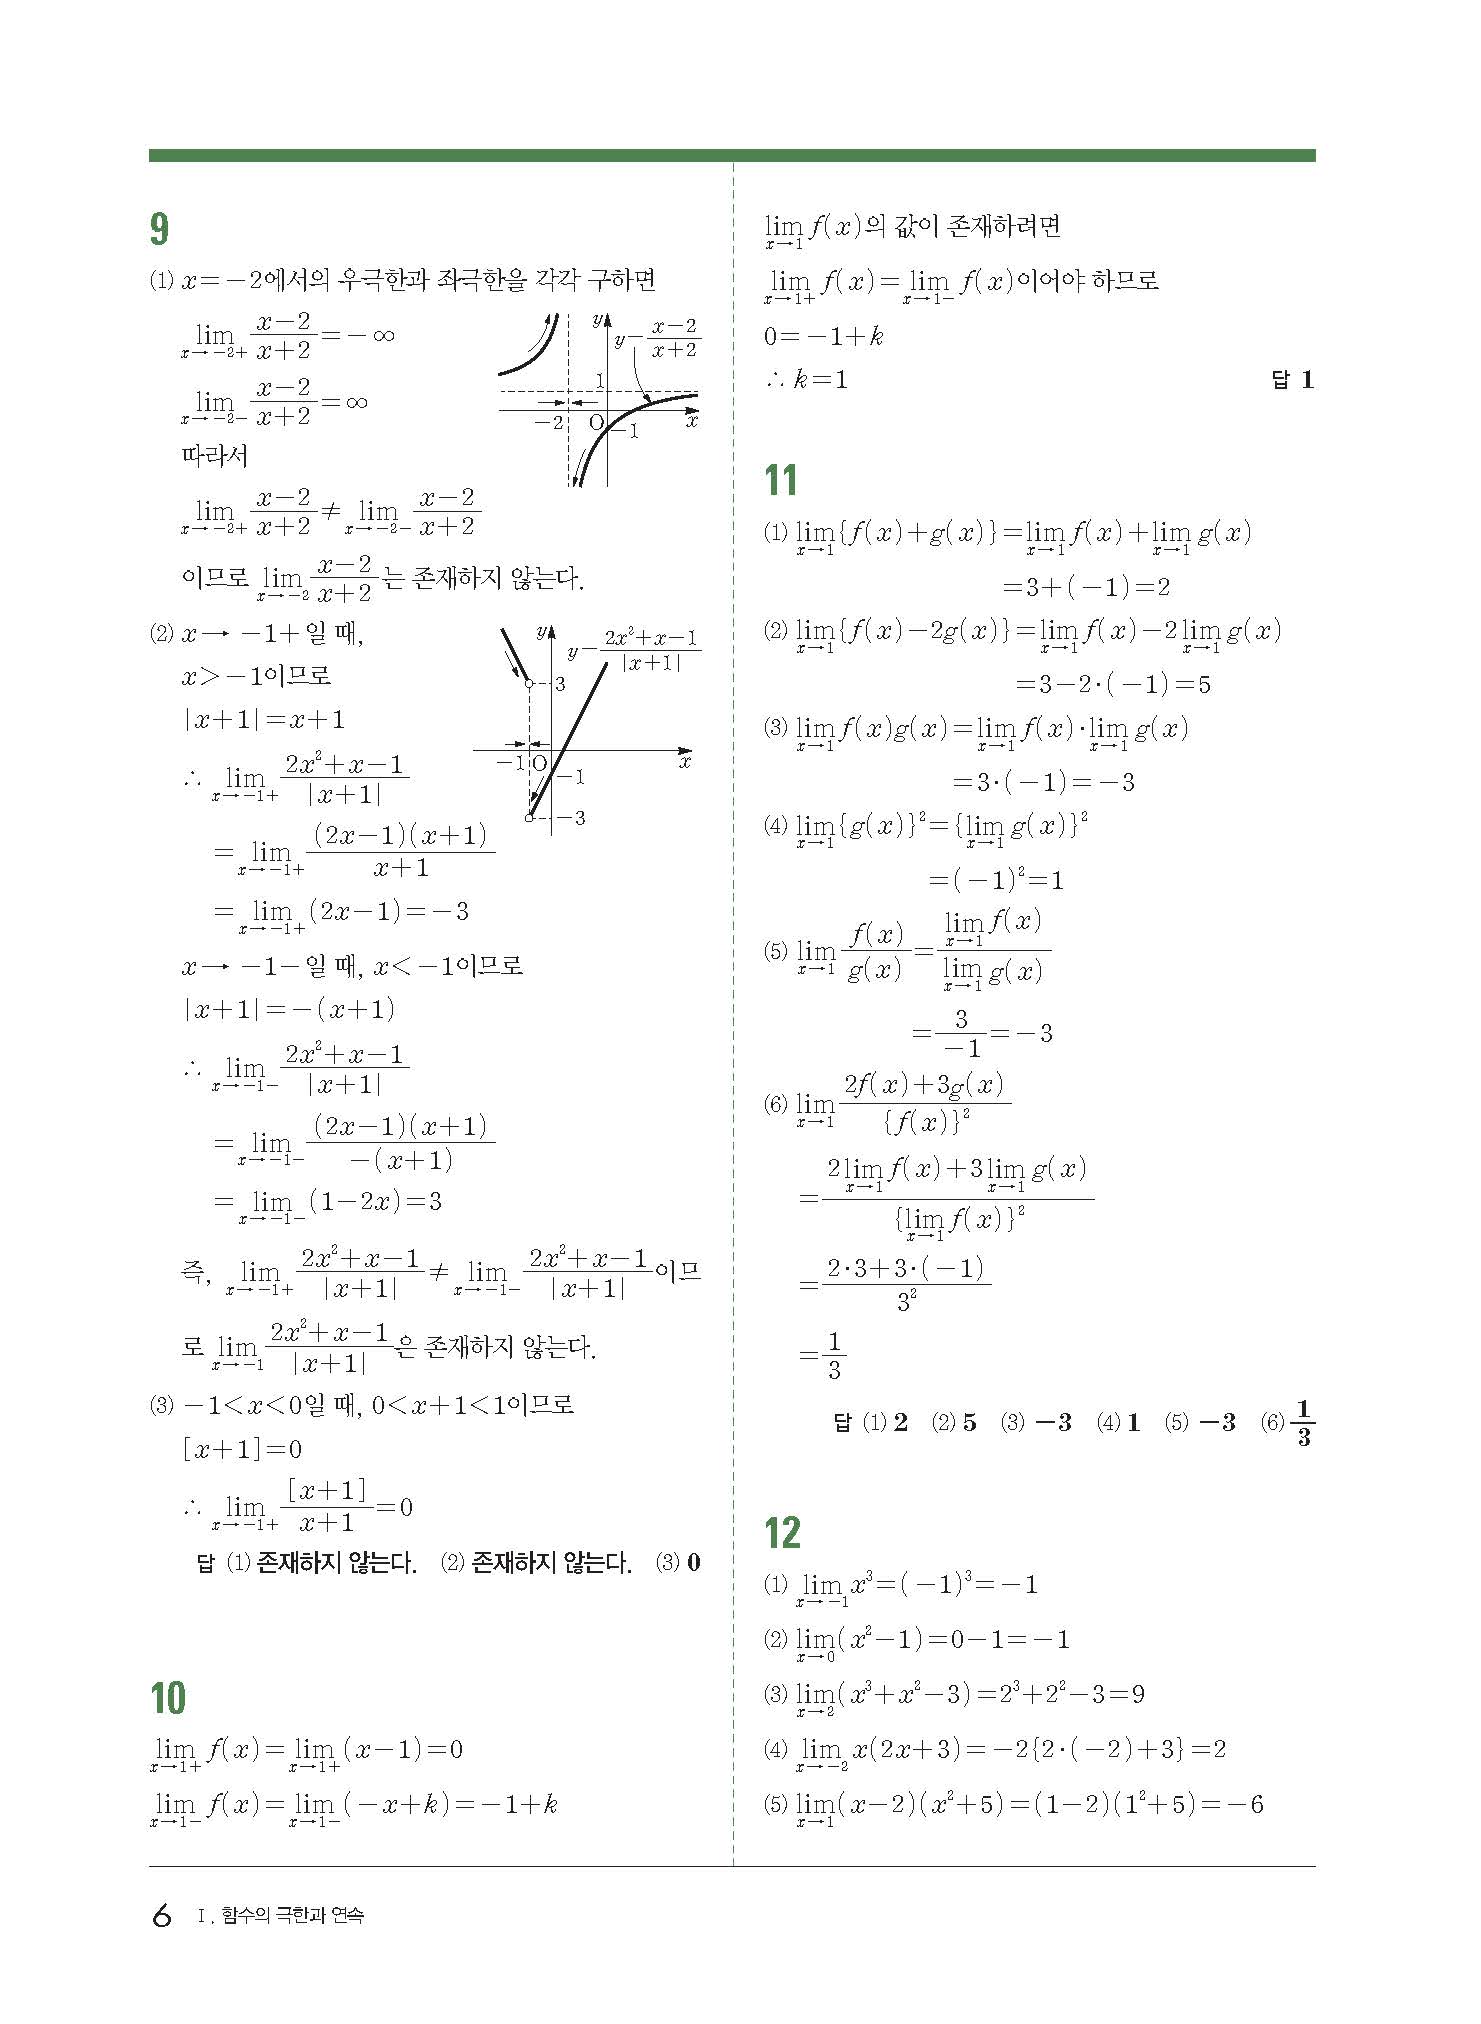 9
(1) x=-2에서의 우극한과 좌극한을 각각 구하면
lim_{x→-2+} (x-2)/(x+2)=-∞
lim_{x→-2-} (x-2)/(x+2)=∞
y
y-(x-2)/(x+2)
1
-2 O -1 x
따라서
lim_{x→-2+} (x-2)/(x+2)≠ lim_{x→-2-} (x-2)/(x+2)
이므로 lim_{x→-2} (x-2)/(x+2)는 존재하지 않는다.
(2) x→ -1+일 때,
x>-1이므로
|x+1|=x+1
∴ lim_{x→-1+} (2x²+x-1)/|x+1|
y
y-(2x²+x-1)/|x+1|
3
-1 O x
-1
-3
=lim_{x→-1+} (2x-1)(x+1)/(x+1)
=lim_{x→-1+} (2x-1)=-3
x→ -1-일 때, x<-1이므로
|x+1|=-(x+1)
∴ lim_{x→-1-} (2x²+x-1)/|x+1|
=lim_{x→-1-} (2x-1)(x+1)/-(x+1)
=lim_{x→-1-} (1-2x)=3
즉, lim_{x→-1+} (2x²+x-1)/|x+1| ≠ lim_{x→-1-} (2x²+x-1)/|x+1| 이므
로 lim_{x→-1} (2x²+x-1)/|x+1|은 존재하지 않는다.
(3) -1<x<0일 때, 0<x+1<1이므로
[x+1]=0
∴ lim_{x→-1+} [x+1]/(x+1)=0
답 (1) 존재하지 않는다. (2) 존재하지 않는다. (3) 0
10
lim_{x→1+} f(x)=lim_{x→1+} (x-1)=0
lim_{x→1-} f(x)=lim_{x→1-} (-x+k)=-1+k
lim_{x→1} f(x)의 값이 존재하려면
lim_{x→1+} f(x)=lim_{x→1-} f(x)이어야 하므로
0=-1+k
∴ k=1 답 1
11
(1) lim_{x→1}{f(x)+g(x)}=lim_{x→1} f(x)+lim_{x→1} g(x)
=3+(-1)=2
(2) lim_{x→1}{f(x)-2g(x)}=lim_{x→1} f(x)-2lim_{x→1} g(x)
=3-2·(-1)=5
(3) lim_{x→1} f(x)g(x)=lim_{x→1} f(x)·lim_{x→1} g(x)
=3·(-1)=-3
(4) lim_{x→1}{g(x)}²={lim_{x→1} g(x)}²
=(-1)²=1
(5) lim_{x→1} f(x)/g(x)=lim_{x→1} f(x)/lim_{x→1} g(x)
=3/-1=-3
(6) lim_{x→1} (2f(x)+3g(x))/{f(x)}²
=(2lim_{x→1} f(x)+3lim_{x→1} g(x))/{lim_{x→1} f(x)}²
=(2·3+3·(-1))/3²
=1/3
답 (1) 2 (2) 5 (3) -3 (4) 1 (5) -3 (6) 1/3
12
(1) lim_{x→-1} x³=(-1)³=-1
(2) lim_{x→0}(x²-1)=0-1=-1
(3) lim_{x→2}(x³+x²-3)=2³+2²-3=9
(4) lim_{x→-2} x(2x+3)=-2{2·(-2)+3}=2
(5) lim_{x→1}(x-2)(x²+5)=(1-2)(1²+5)=-6
6 Ⅰ. 함수의 극한과 연속